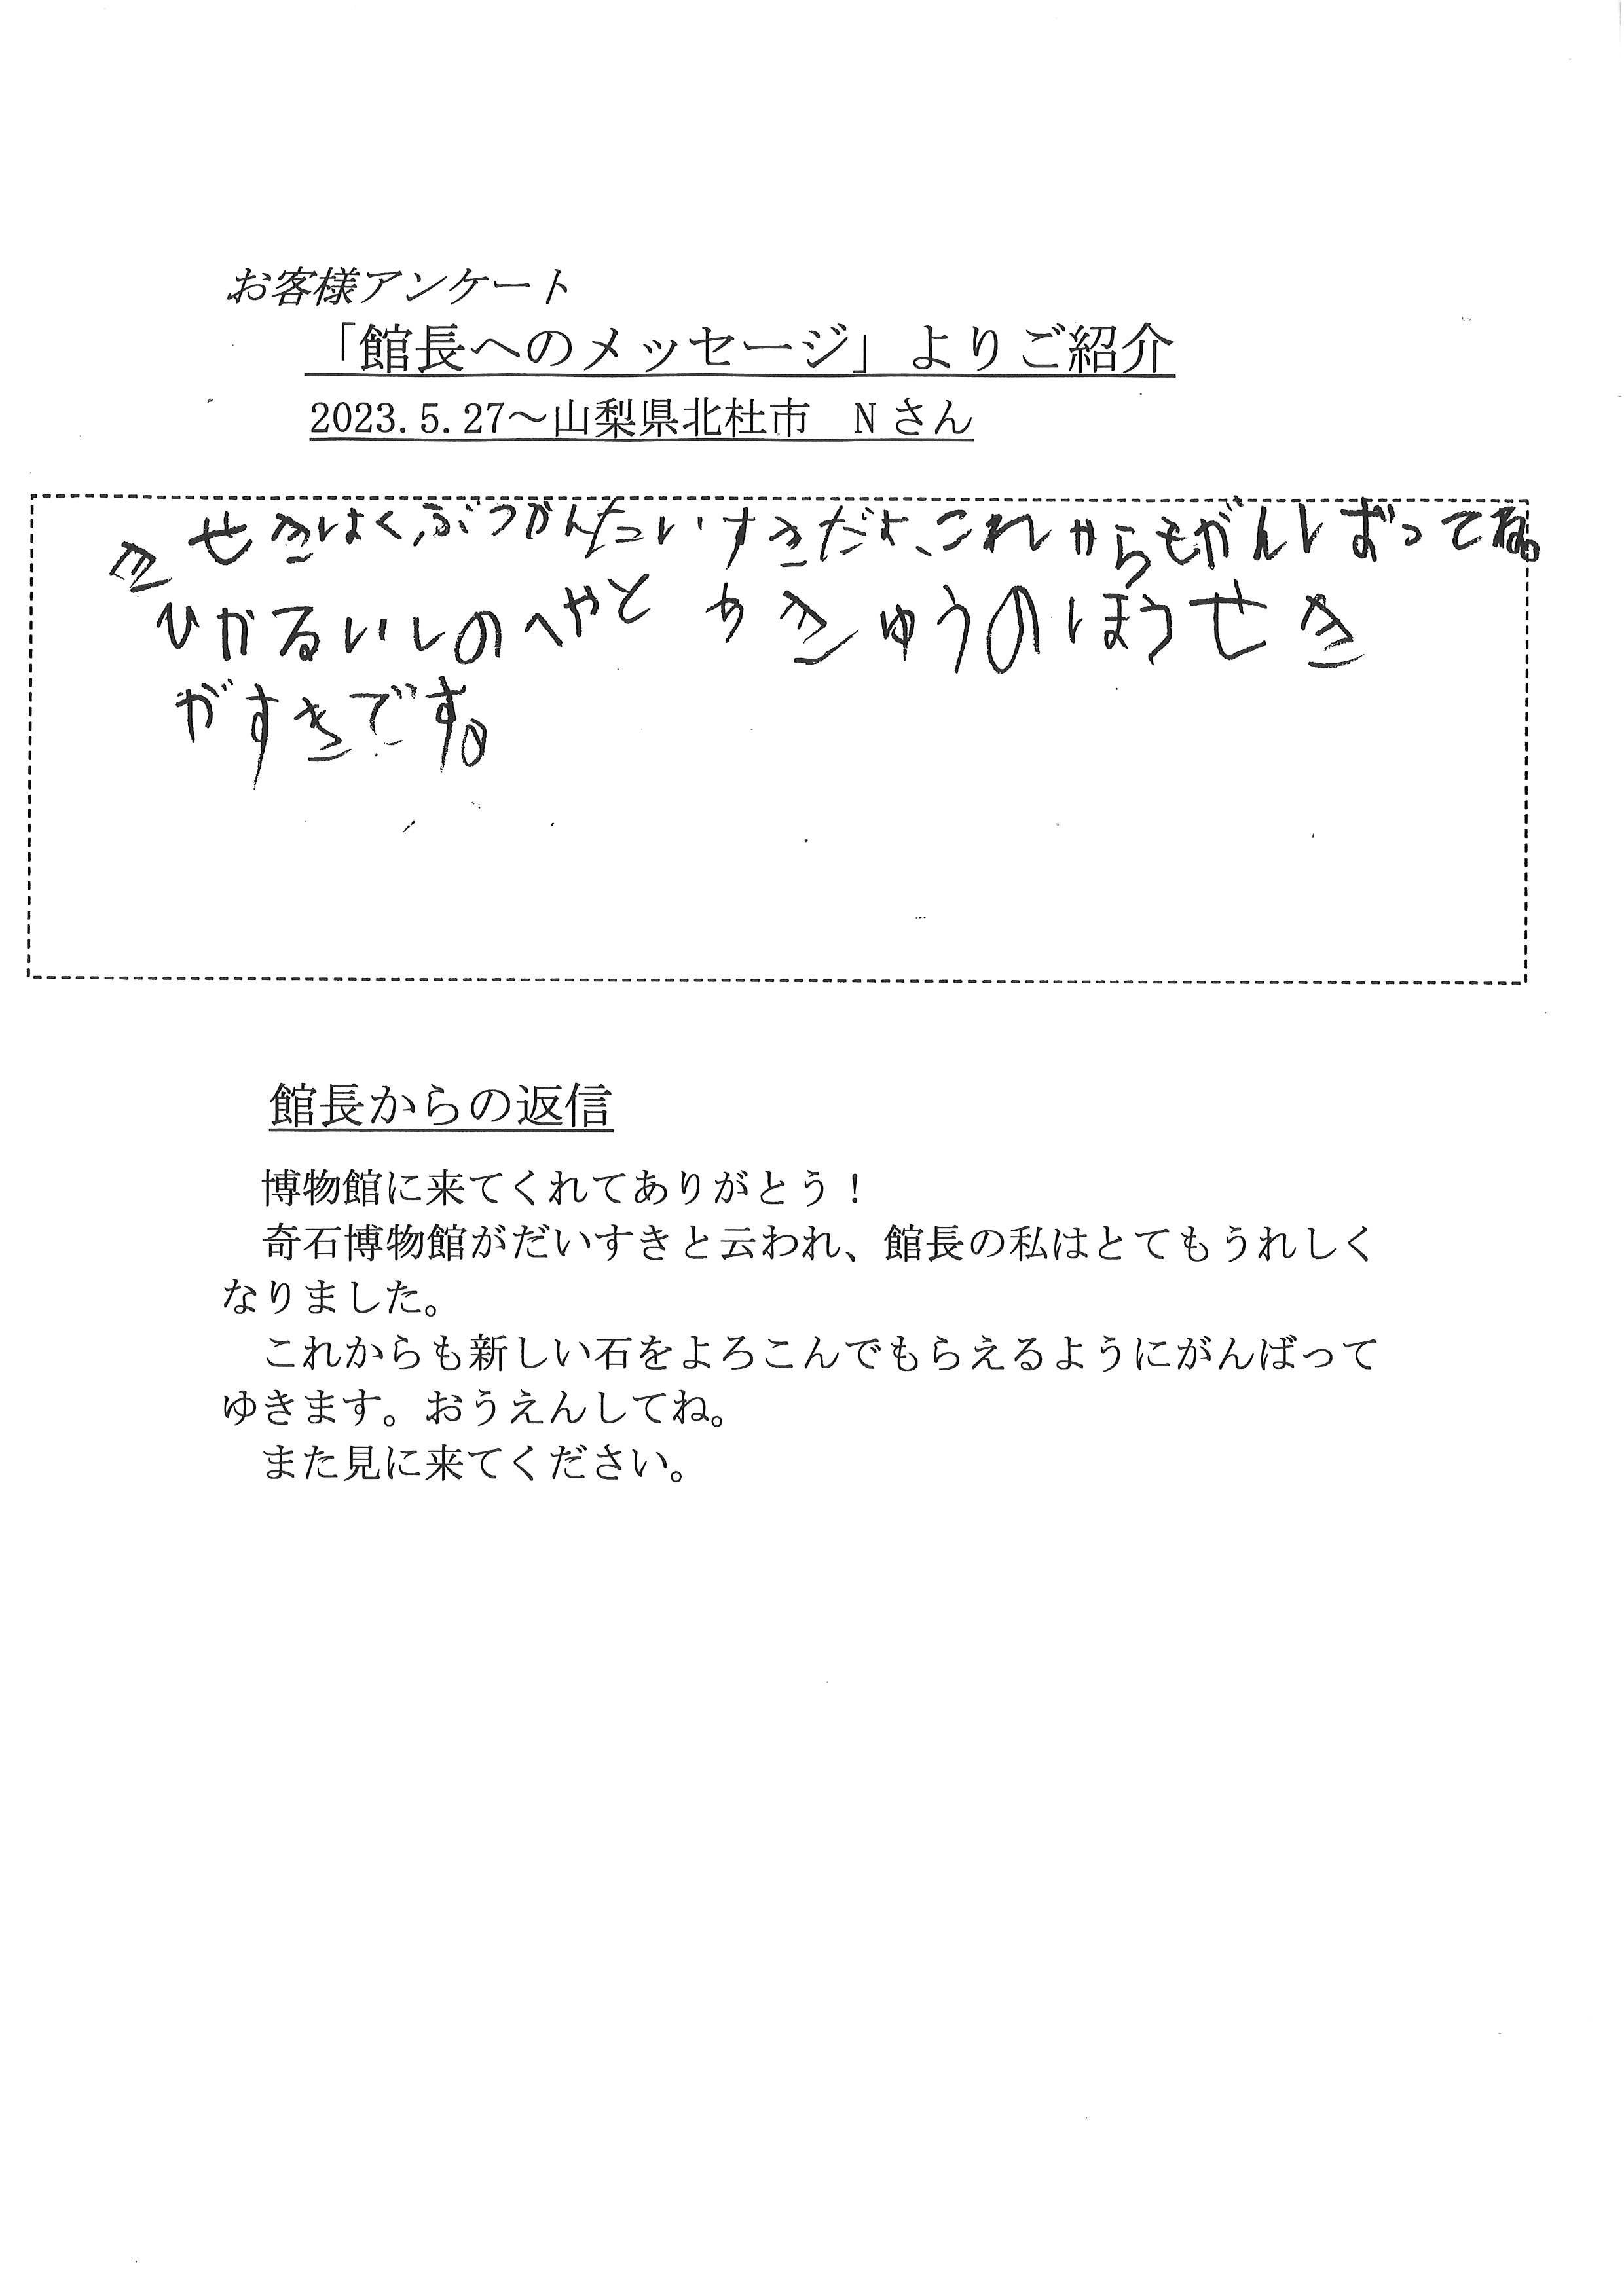 お客様アンケート
「館長へのメッセージ」よりご紹介
2023.5.27～山梨県北杜市　Nさん
きせきはくぶつかんだいすきだよ、これからもがんばってね。
ひかるいしのへやと ちきゅうのほうせき
がすきです。
館長からの返信
博物館に来てくれてありがとう！
奇石博物館がだいすきと云われ、館長の私はとてもうれしく
なりました。
これからも新しい石をよろこんでもらえるようにがんばって
ゆきます。おうえんしてね。
また見に来てください。